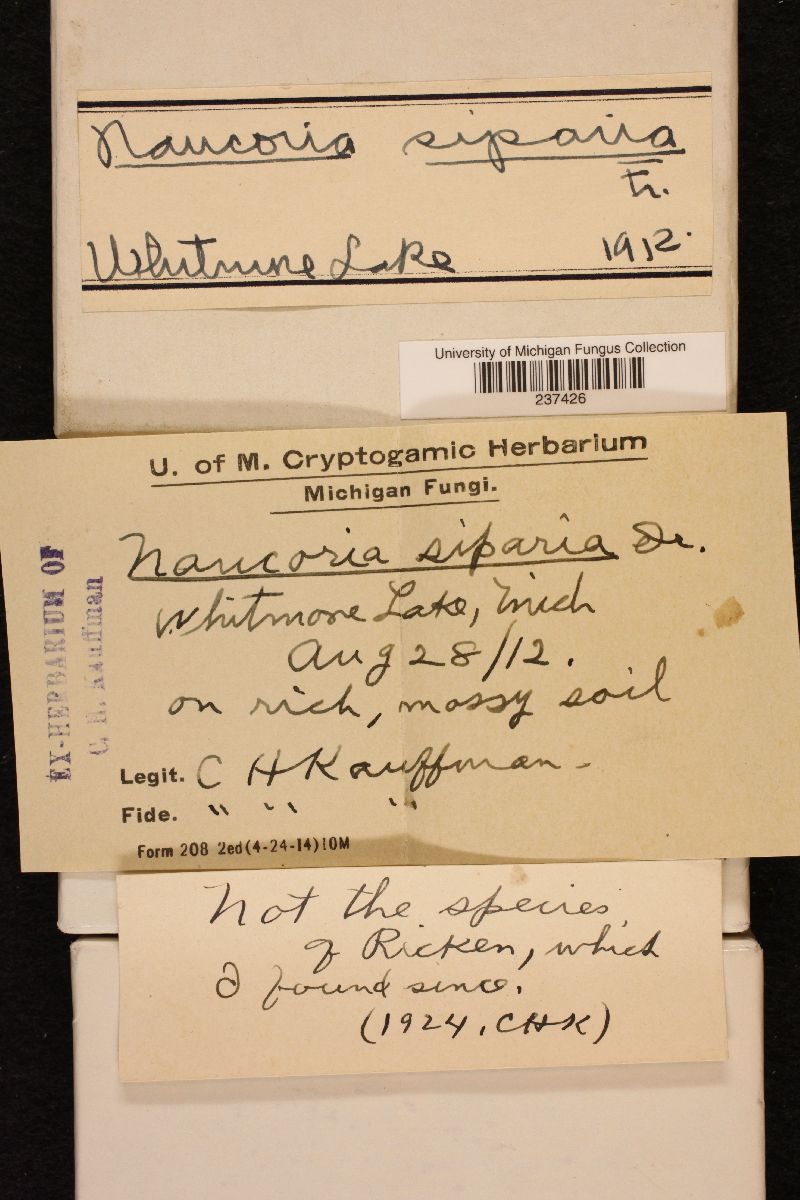 Naucoria siparia
Fr.
Whitmore Lake 1912.
University of Michigan Fungus Collection
237426
U. of M. Cryptogamic Herbarium
Michigan Fungi.
EX-HERBARIUM OF
C. H. Kauffman
Naucoria siparia Fr.
Whitmore Lake, Mich
Aug 28/12.
on rich, mossy soil
Legit. C H Kauffman -
Fide. " " "
Form 208 2ed(4-24-14)10M
Not the species
of Ricken, which
I found since.
(1924, CHK)